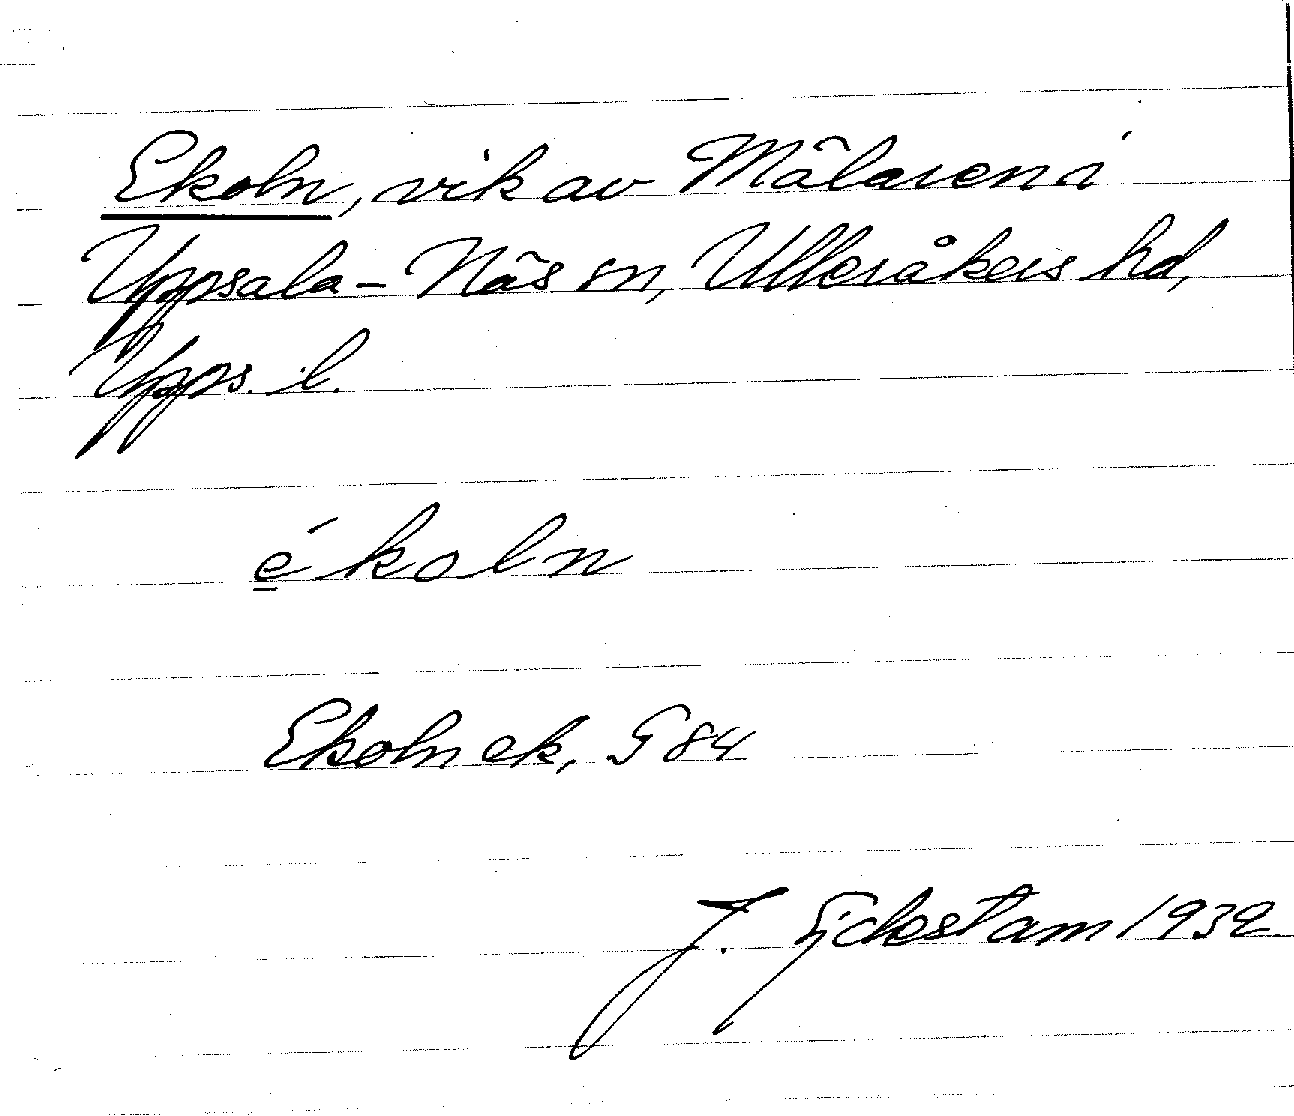 Ekoln, vik av Mälaren i
Uppsala-Näs sn, Ulleråkers hd,
Upps. l.
ékoln
Ekoln ek, G 84
J. 1932